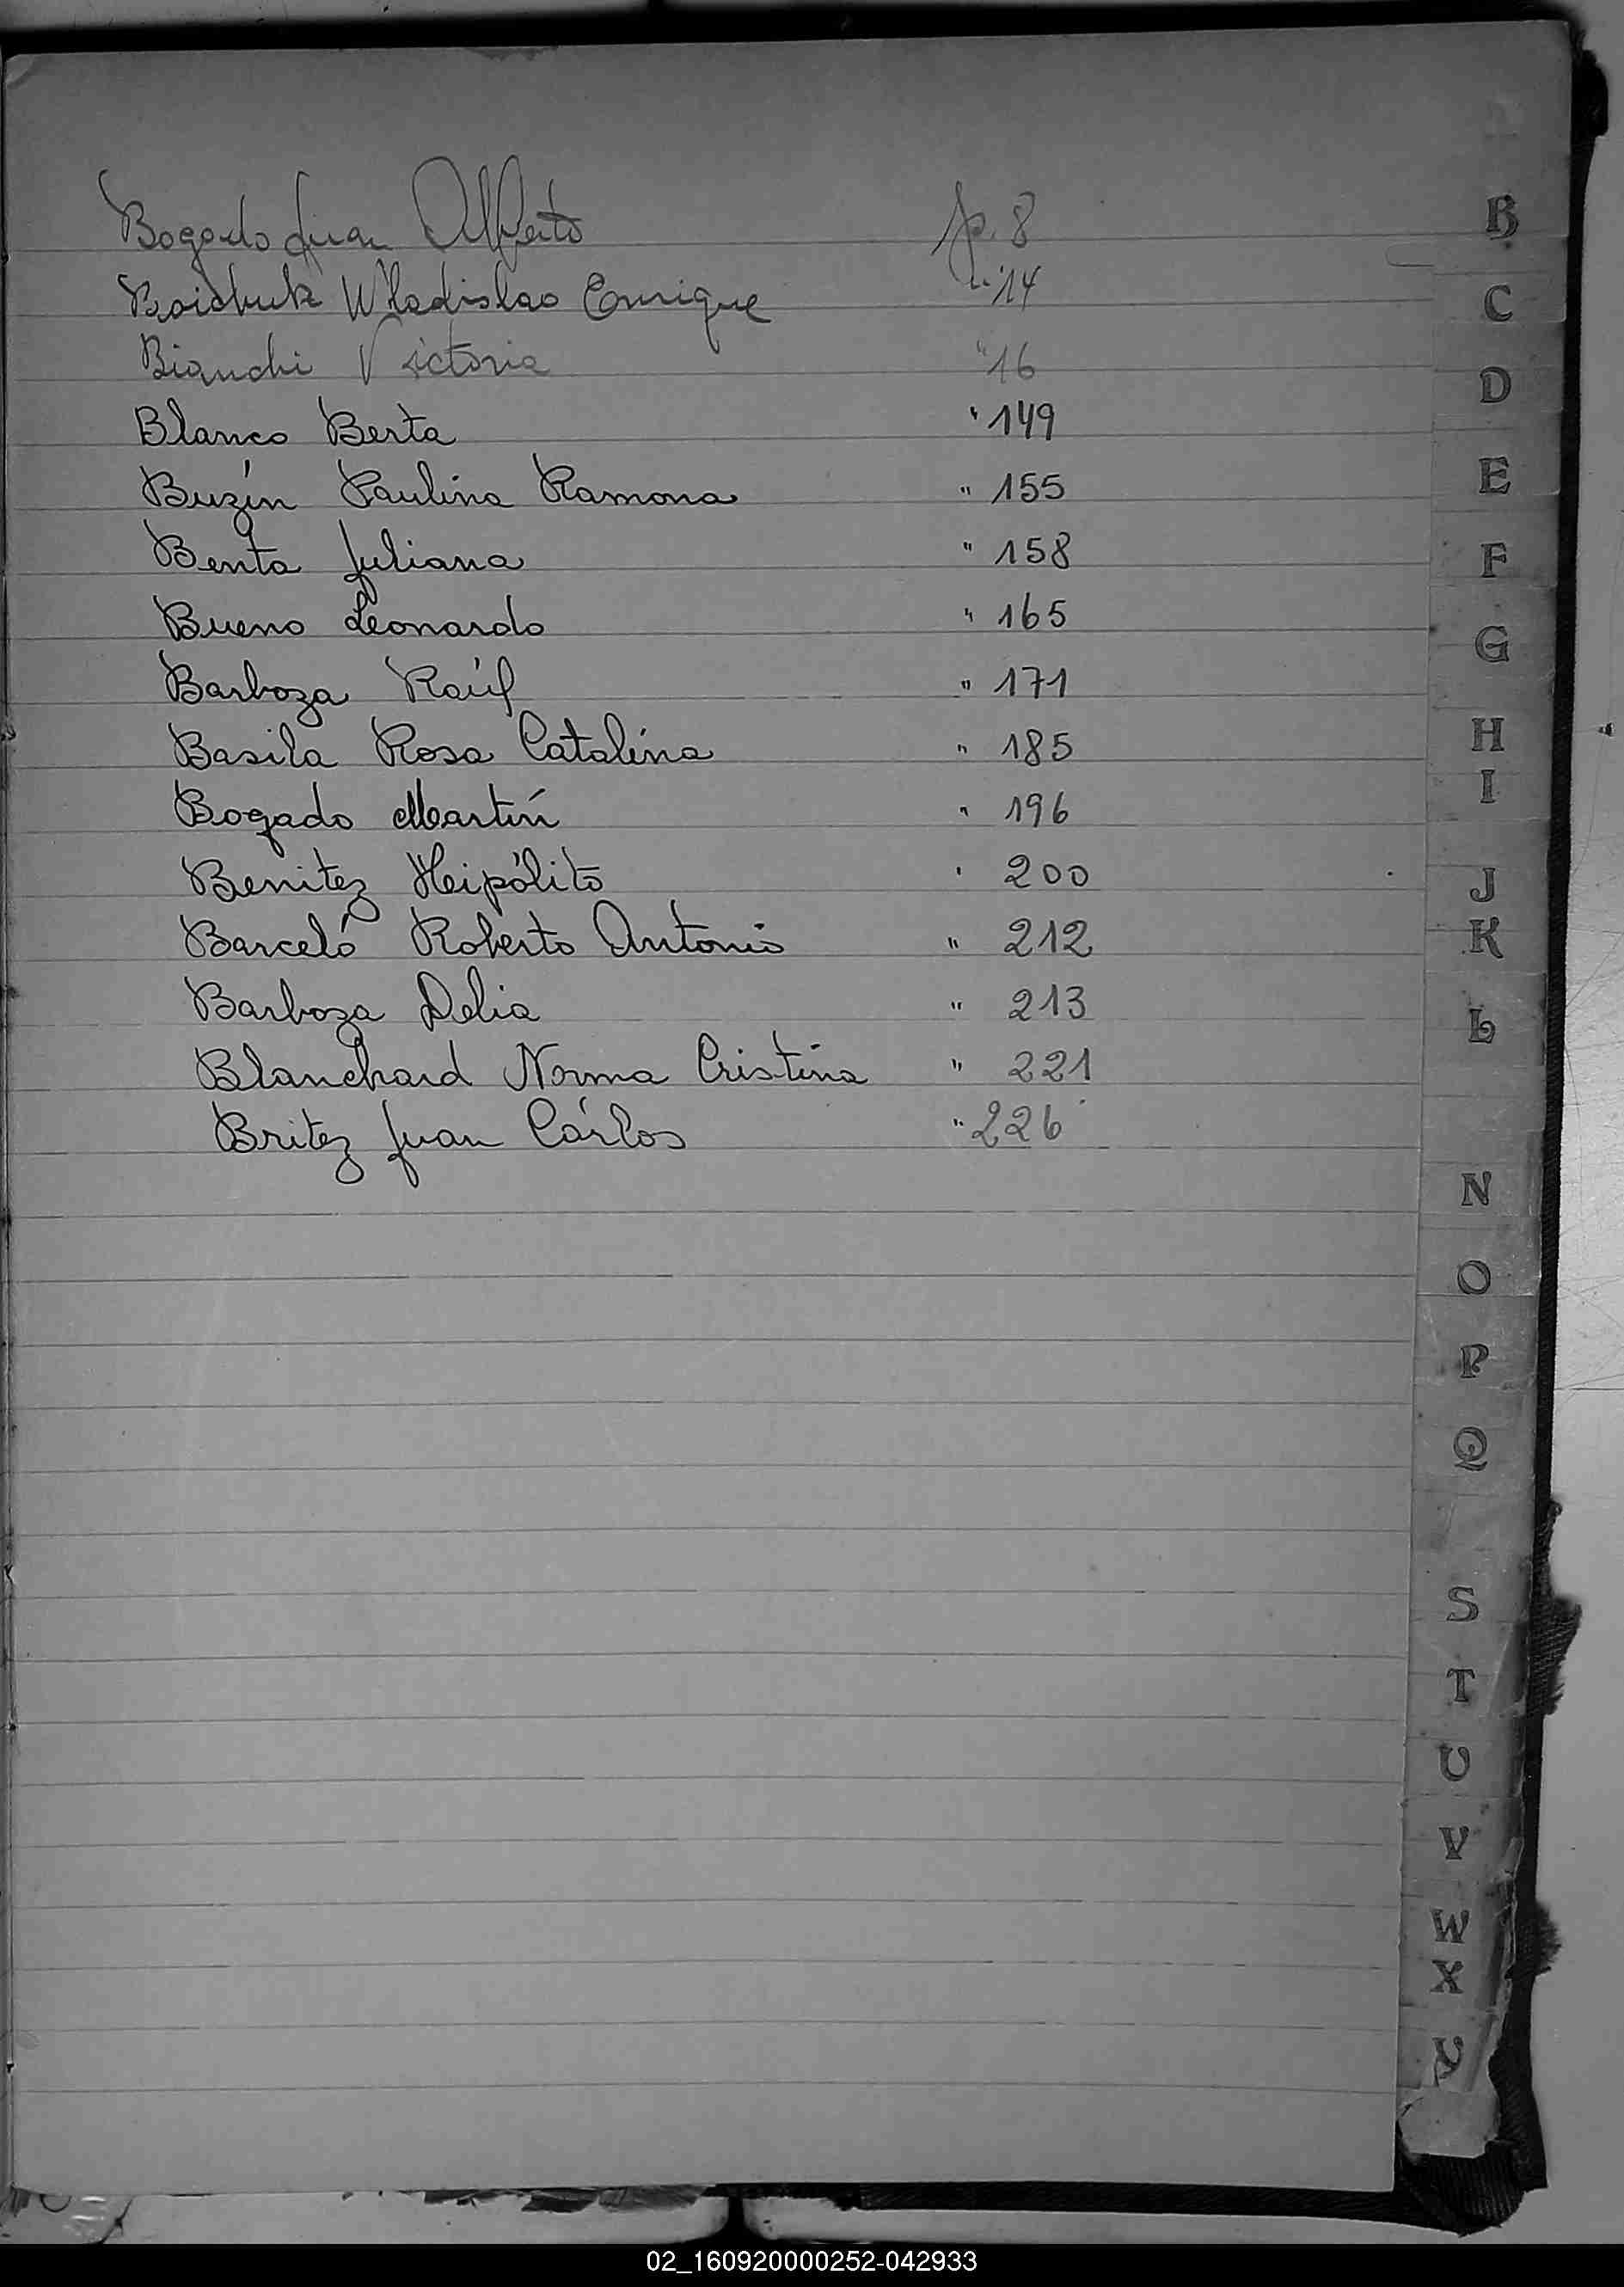 Bogado Juan Alberto p. 8
Boichuk Wladislao Enrique " 14
Bianchi Victoria " 16
Blanco Berta " 149
Buzín Paulina Ramona " 155
Benta Juliana " 158
Bueno Leonardo " 165
Barboza Raúl " 171
Basila Rosa Catalina " 185
Bogado Martín " 196
Benitez Heipólito " 200
Barceló Roberto Antonio " 212
Barboza Delia " 213
Blanchard Norma Cristina " 221
Britez Juan Cárlos " 226
B
C
D
E
F
G
H
I
J
K
L
N
O
P
Q
S
T
U
V
W
X
Y
02_160920000252-042933